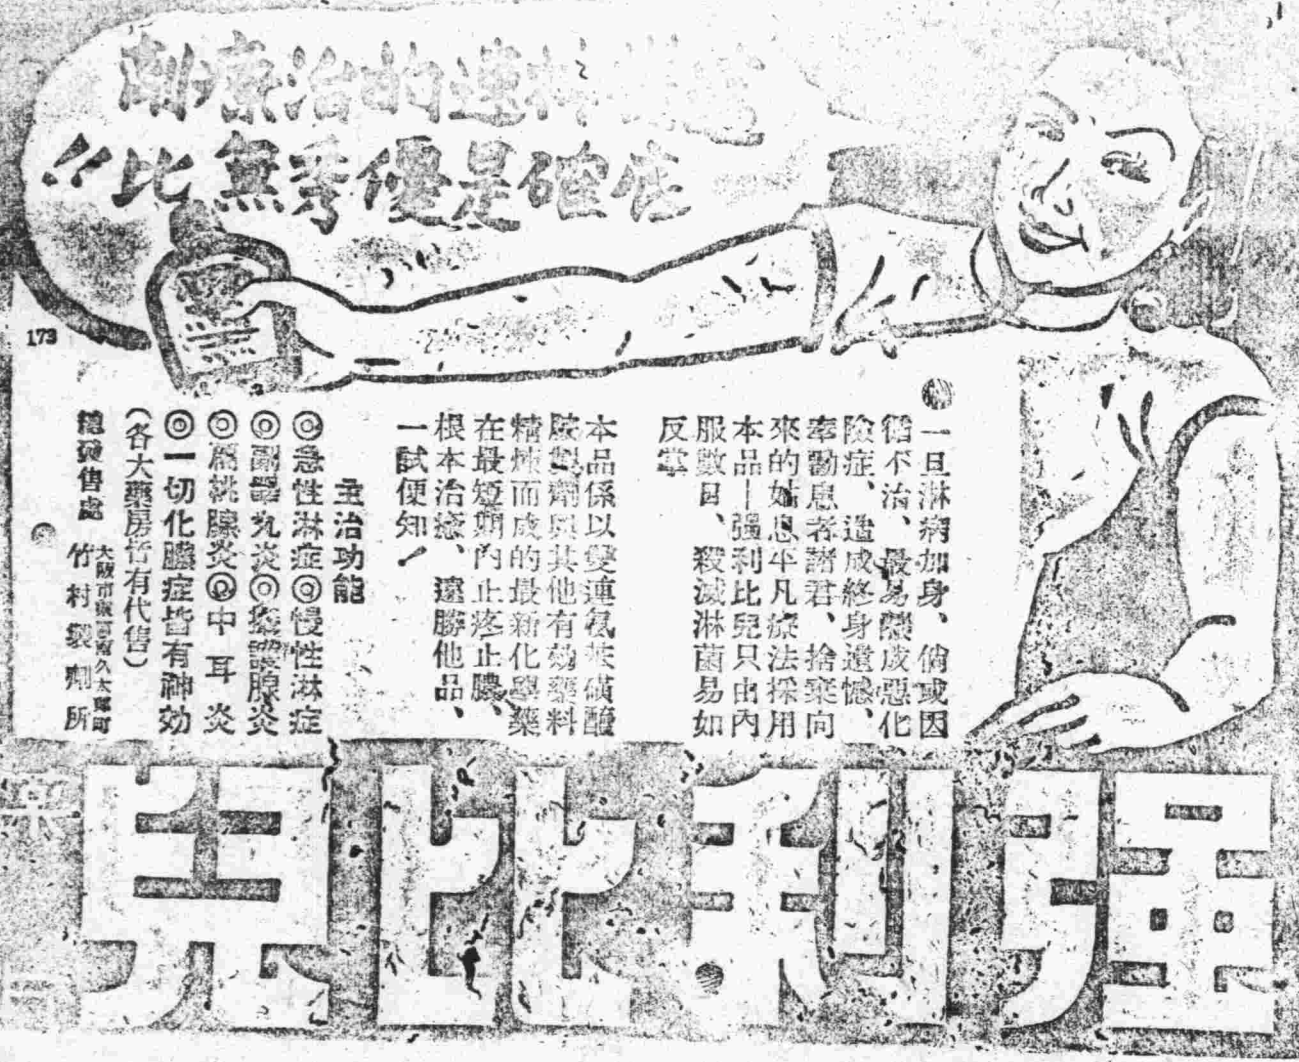 淋科速的治療劑
確是優秀無比!!
173
一旦淋病加身、倘或因
循不治、最易釀成惡化
險症、造成終身遺憾、
奉勸患者諸君、捨棄向
來的姑息平凡療法採用
本品—强利比兒只由內
服數日、殺滅淋菌易如
反掌
本品係以雙連氨基磺醯
胺製劑與其他有効藥料
精煉而成的最新化學藥
在最短期內止疼止膿、
根本治癒、遠勝他品、
一試便知！
主治功能
◎急性淋症◎慢性淋症
◎副睪丸炎◎攝護腺炎
◎扁桃腺炎◎中耳炎
◎一切化膿症皆有神効
(各大藥房皆有代售)
總發售處
大阪市東區南久太郎町
竹村製劑所
强利比兒